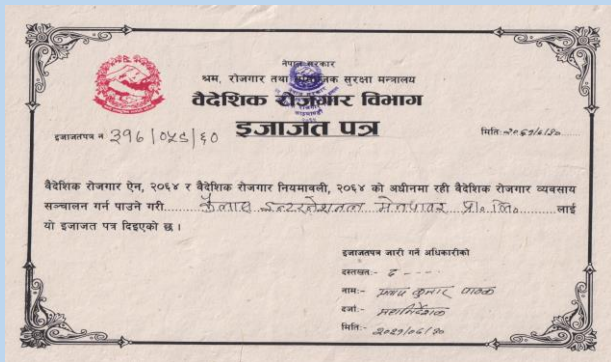 नेपाल सरकार
श्रम, रोजगार तथा सामाजिक सुरक्षा मन्त्रालय
वैदेशिक रोजगार विभाग
इजाजत पत्र
इजाजतपत्र नं
मिति:-
वैदेशिक रोजगार ऐन, २०६४ र वैदेशिक रोजगार नियमावली, २०६४ को अधीनमा रही वैदेशिक रोजगार व्यवसाय
सञ्चालन गर्न पाउने गरी कैलाश इन्टरनेशनल मेनपावर प्रा॰ लि॰ लाई
यो इजाजत पत्र दिइएको छ ।
इजाजतपत्र जारी गर्ने अधिकारीको
दस्तखत:-
नाम:- कुमार
दर्जा:- महानिर्देशक
मिति:-